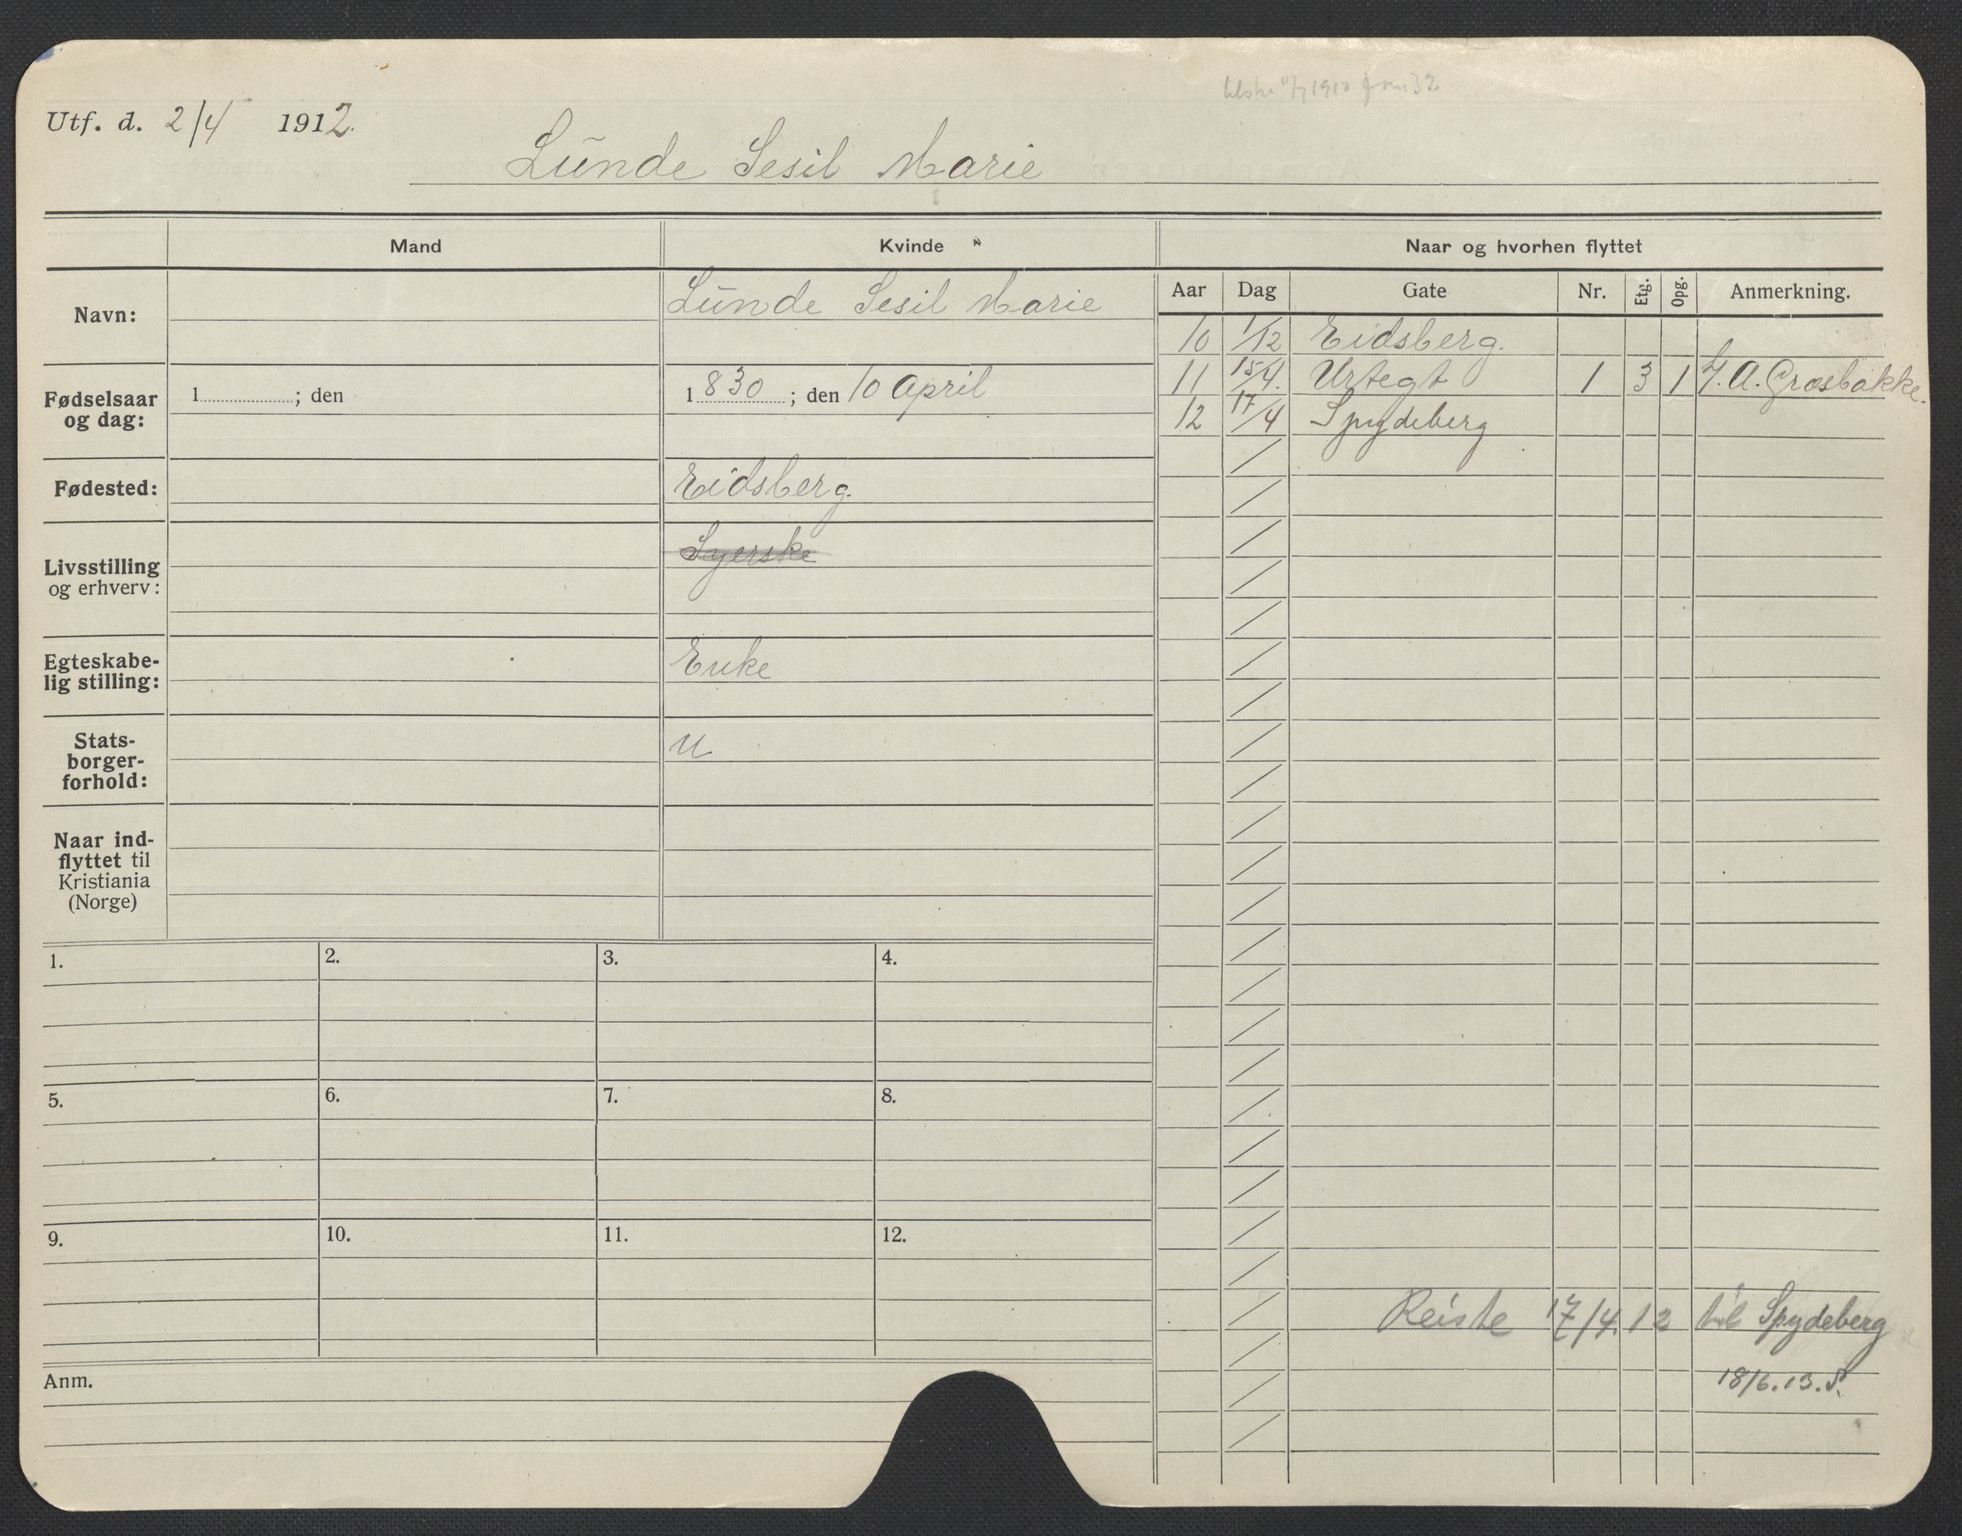 Utf. d. 2/4 1912.
Lunde Sesil Marie
Mand
Kvinde
Naar og hvorhen flyttet
Navn:
Lunde Sesil Marie
Fødselsaar
og dag:
1 ; den
1830 ; den 10 April
Fødested:
Eidsberg.
Livsstilling
og erhverv:
Syerske
Egteskabe-
lig stilling:
Enke
Stats-
borger-
forhold:
u
Naar ind-
flyttet til
Kristiania
(Norge)
1. 2. 3. 4.
5. 6. 7. 8.
9. 10. 11. 12.
Anm.
Aar Dag Gate Nr. Etg. Opg. Anmerkning.
10 1/12 Eidsberg.
11 15/4. Urtegt 1 3 1 A. Græsbakke.
12 17/4 Spydeberg
Reiste 17/4.12 til Spydeberg
18/6.13.S.